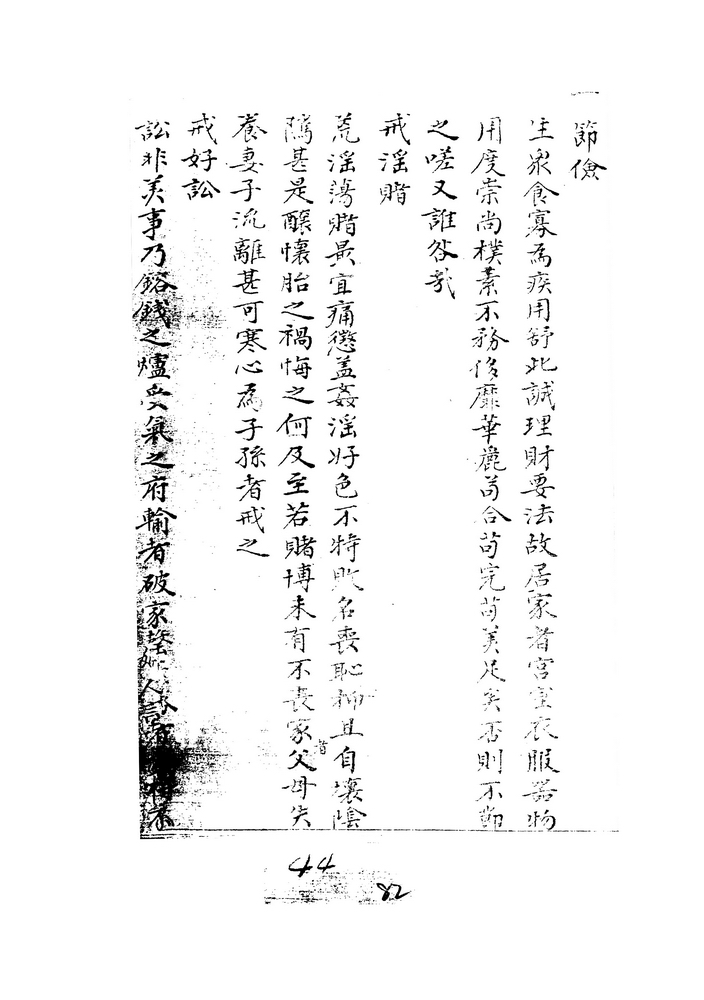 節儉
生衆食寡為疾用舒此誠理財要法故居家者宮室衣服器物
用度崇尚樸素不務侈靡華麗苟合苟完苟美足矣否則不節
之嗟又誰咎哉
戒淫賭
荒淫蕩賭最宜痛懲盖姦淫好色不特敗名喪恥抑且自壞陰
隲甚是釀懷胎之禍悔之何及至若賭博未有不喪家者父母失
養妻子流離甚可寒心為子孫者戒之
戒好訟
訟非美事乃鎔錢之爐受氣之府輸者破家蕩 人言
44
82